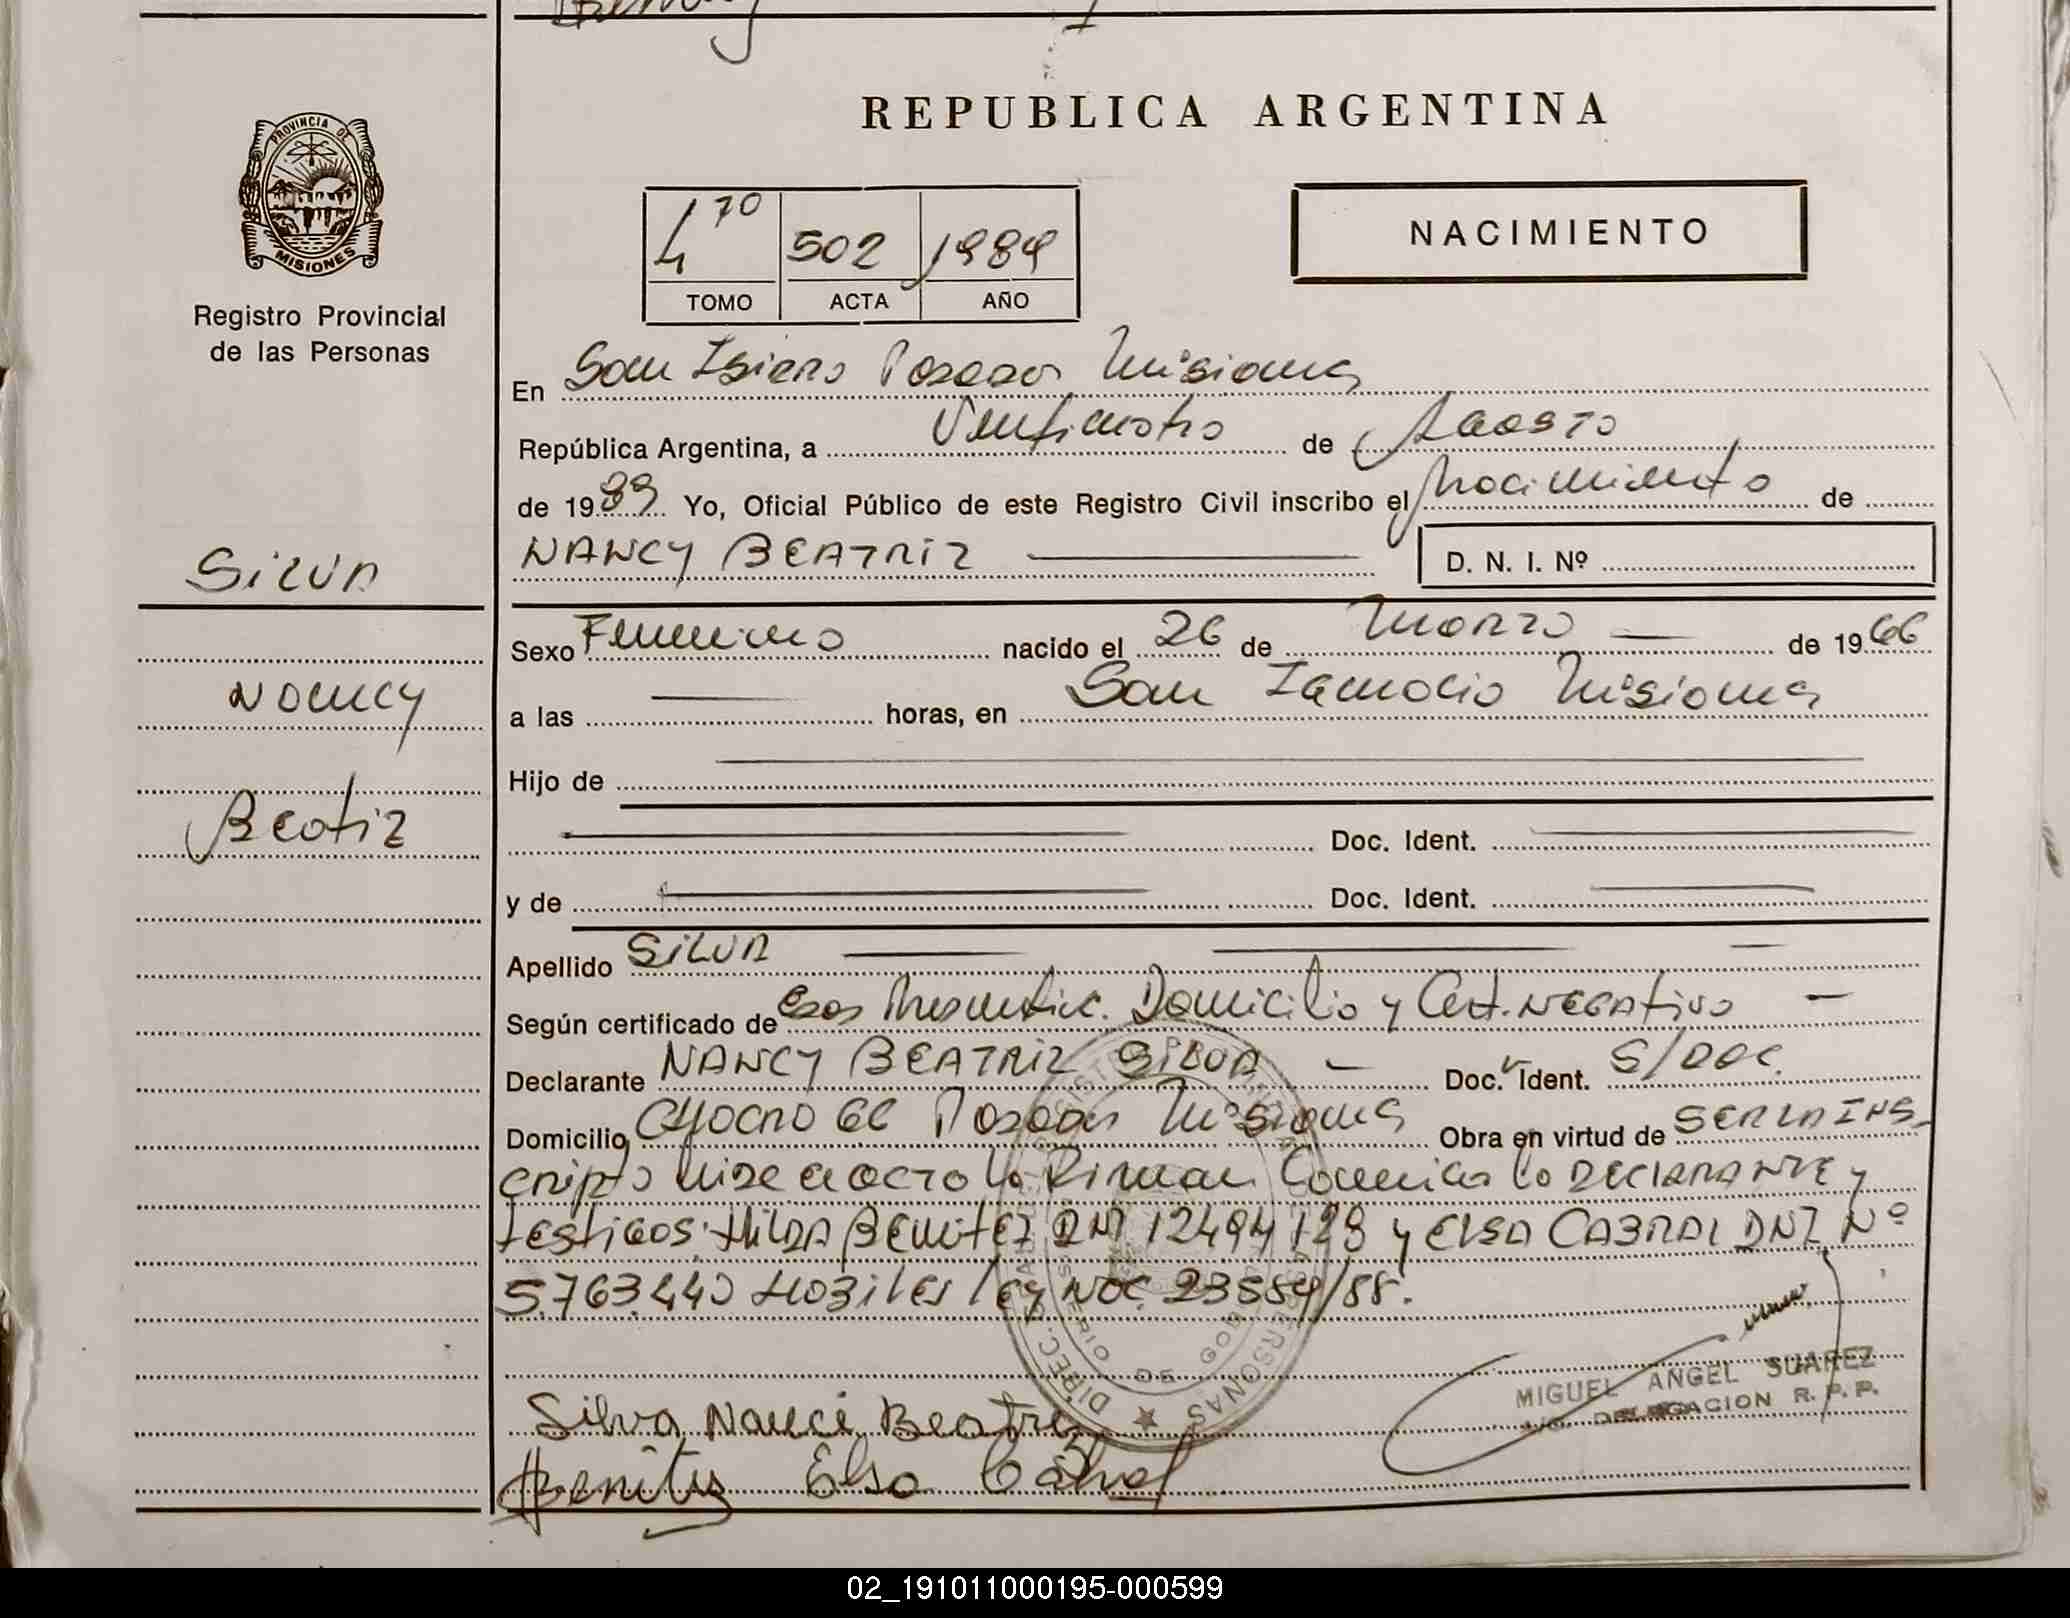 REPUBLICA ARGENTINA
PROVINCIA DE
MISIONES
Registro Provincial
de las Personas
NACIMIENTO
4 70 502 1989
TOMO ACTA AÑO
En San Isidro Posadas Misiones
República Argentina, a Veinticuatro de Agosto
de 1989 Yo, Oficial Público de este Registro Civil inscribo el Nacimiento de
NANCY BEATRIZ
D. N. I. Nº
Silva
Nancy
Beatriz
Sexo Femenino nacido el 26 de Marzo de 1966
a las horas, en San Ignacio Misiones
Hijo de
Doc. Ident.
y de Doc. Ident.
Apellido SILVA
Según certificado de Domicilio y Cert. NEGATIVO
Declarante NANCY BEATRIZ SILVA Doc. Ident. S/DOC.
Domicilio Posadas Misiones Obra en virtud de SER LA INS
cripto la Firman la DECLARANTE y
testigos: HILDA BENITEZ DNI 12494129 y ELSA CABRAL DNI Nº
5.763.440 Ley NAC. 23584/88.
Silva Nanci Beatriz
Benitez Elsa Cabral
MIGUEL ANGEL SUAREZ
DELEGACION R. P. P.
02_191011000195-000599